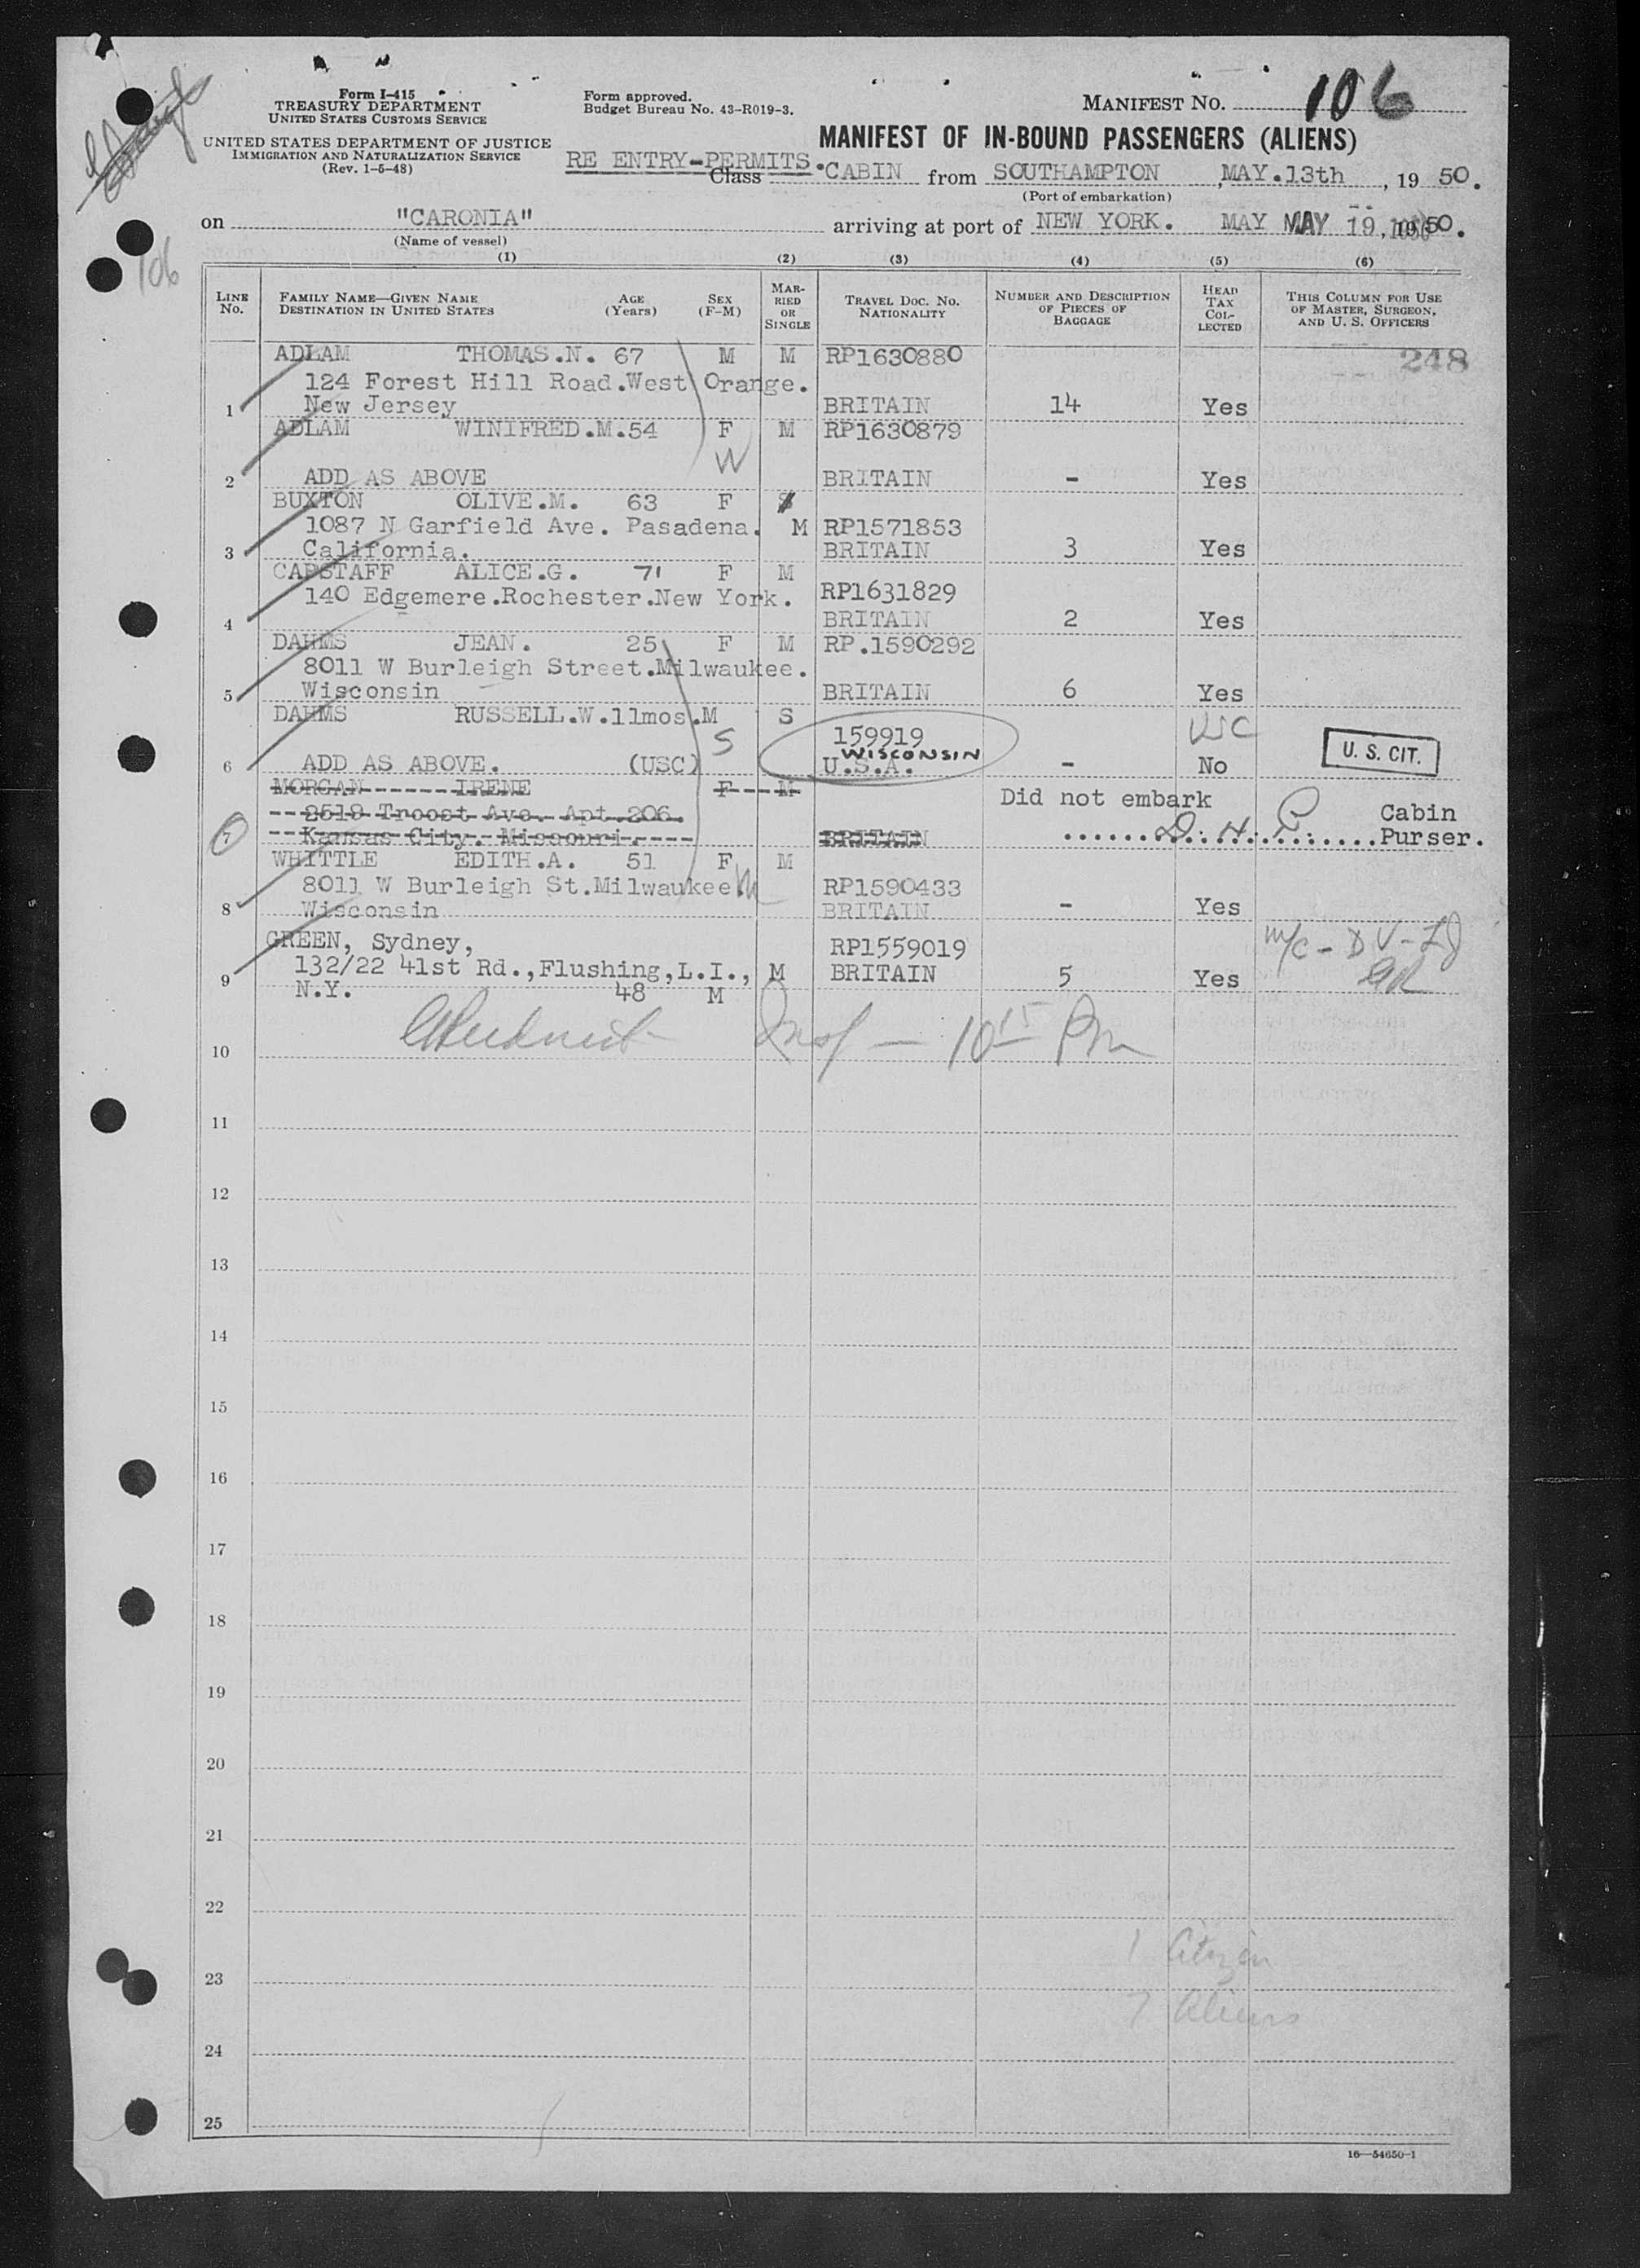 Form I-415
TREASURY DEPARTMENT
UNITED STATES CUSTOMS SERVICE
UNITED STATES DEPARTMENT OF JUSTICE
IMMIGRATION AND NATURALIZATION SERVICE
(Rev. 1-5-48)
Form approved.
Budget Bureau No. 43-R019-3.
MANIFEST NO. 106
MANIFEST OF IN-BOUND PASSENGERS (ALIENS)
RE ENTRY-PERMITS
Class CABIN from SOUTHAMPTON, MAY.13th, 19 50.
(Port of embarkation)
on "CARONIA" arriving at port of NEW YORK. MAY MAY 19, 1950.
(Name of vessel)
106
(1) (2) (3) (4) (5) (6)
LINE No.
FAMILY NAME—GIVEN NAME
DESTINATION IN UNITED STATES
AGE (Years)
SEX (F-M)
MARRIED OR SINGLE
TRAVEL DOC. NO.
NATIONALITY
NUMBER AND DESCRIPTION OF PIECES OF BAGGAGE
HEAD TAX COLLECTED
THIS COLUMN FOR USE OF MASTER, SURGEON, AND U. S. OFFICERS
248
ADLAM THOMAS.N. 67 M M RP1630880
124 Forest Hill Road.West Orange.
1 New Jersey BRITAIN 14 Yes
ADLAM WINIFRED.M.54 F M RP1630879
W
2 ADD AS ABOVE BRITAIN - Yes
BUXTON OLIVE.M. 63 F S
1087 N Garfield Ave. Pasadena. M RP1571853
3 California. BRITAIN 3 Yes
CAPSTAFF ALICE.G. 71 F M
140 Edgemere.Rochester.New York. RP1631829
4 BRITAIN 2 Yes
DAHMS JEAN. 25 F M RP.1590292
8011 W Burleigh Street.Milwaukee.
5 Wisconsin BRITAIN 6 Yes
DAHMS RUSSELL.W.11mos.M S
S 159919 USC
WISCONSIN U. S. CIT.
6 ADD AS ABOVE. (USC) U.S.A. - No
MORGAN IRENE F M
2519 Troost Ave. Apt.206. Did not embark Cabin
7 Kansas City. Missouri. BRITAIN D.H.P. Purser.
WHITTLE EDITH.A. 51 F M
8011 W Burleigh St.Milwaukee RP1590433
8 Wisconsin BRITAIN - Yes
GREEN, Sydney, RP1559019
9 132/22 41st Rd.,Flushing,L.I., M BRITAIN 5 Yes
N.Y. 48 M
Insp — 10 15 Pm
10
11
12
13
14
15
16
17
18
19
20
21
22
1 Citizen
23
7 Aliens
24
25
16—54650-1